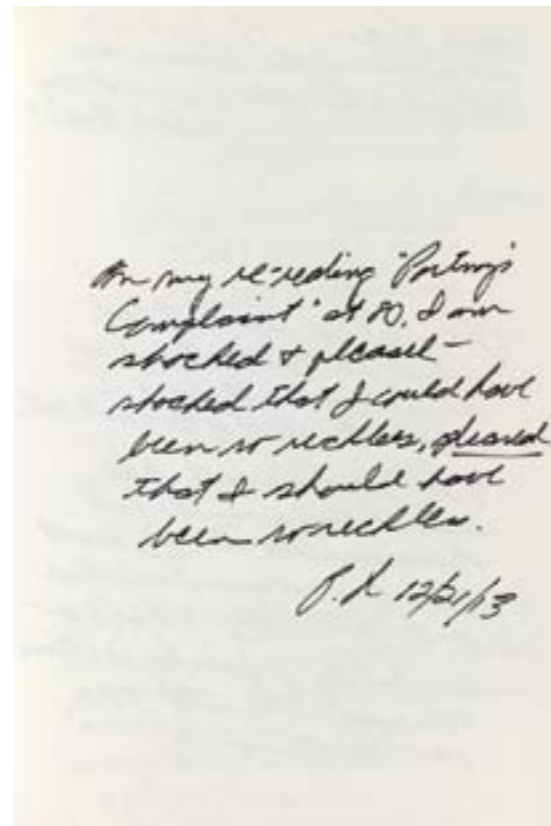 On my re-reading "Portnoy's
Complaint" at 80, I am
shocked & pleased—
shocked that I could have
been so reckless, pleased
that I should have
been so reckless.
12/21/13